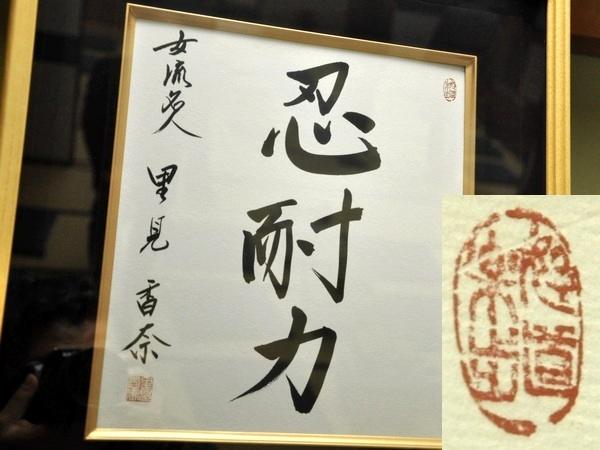 忍耐力
女流名人 里見香奈